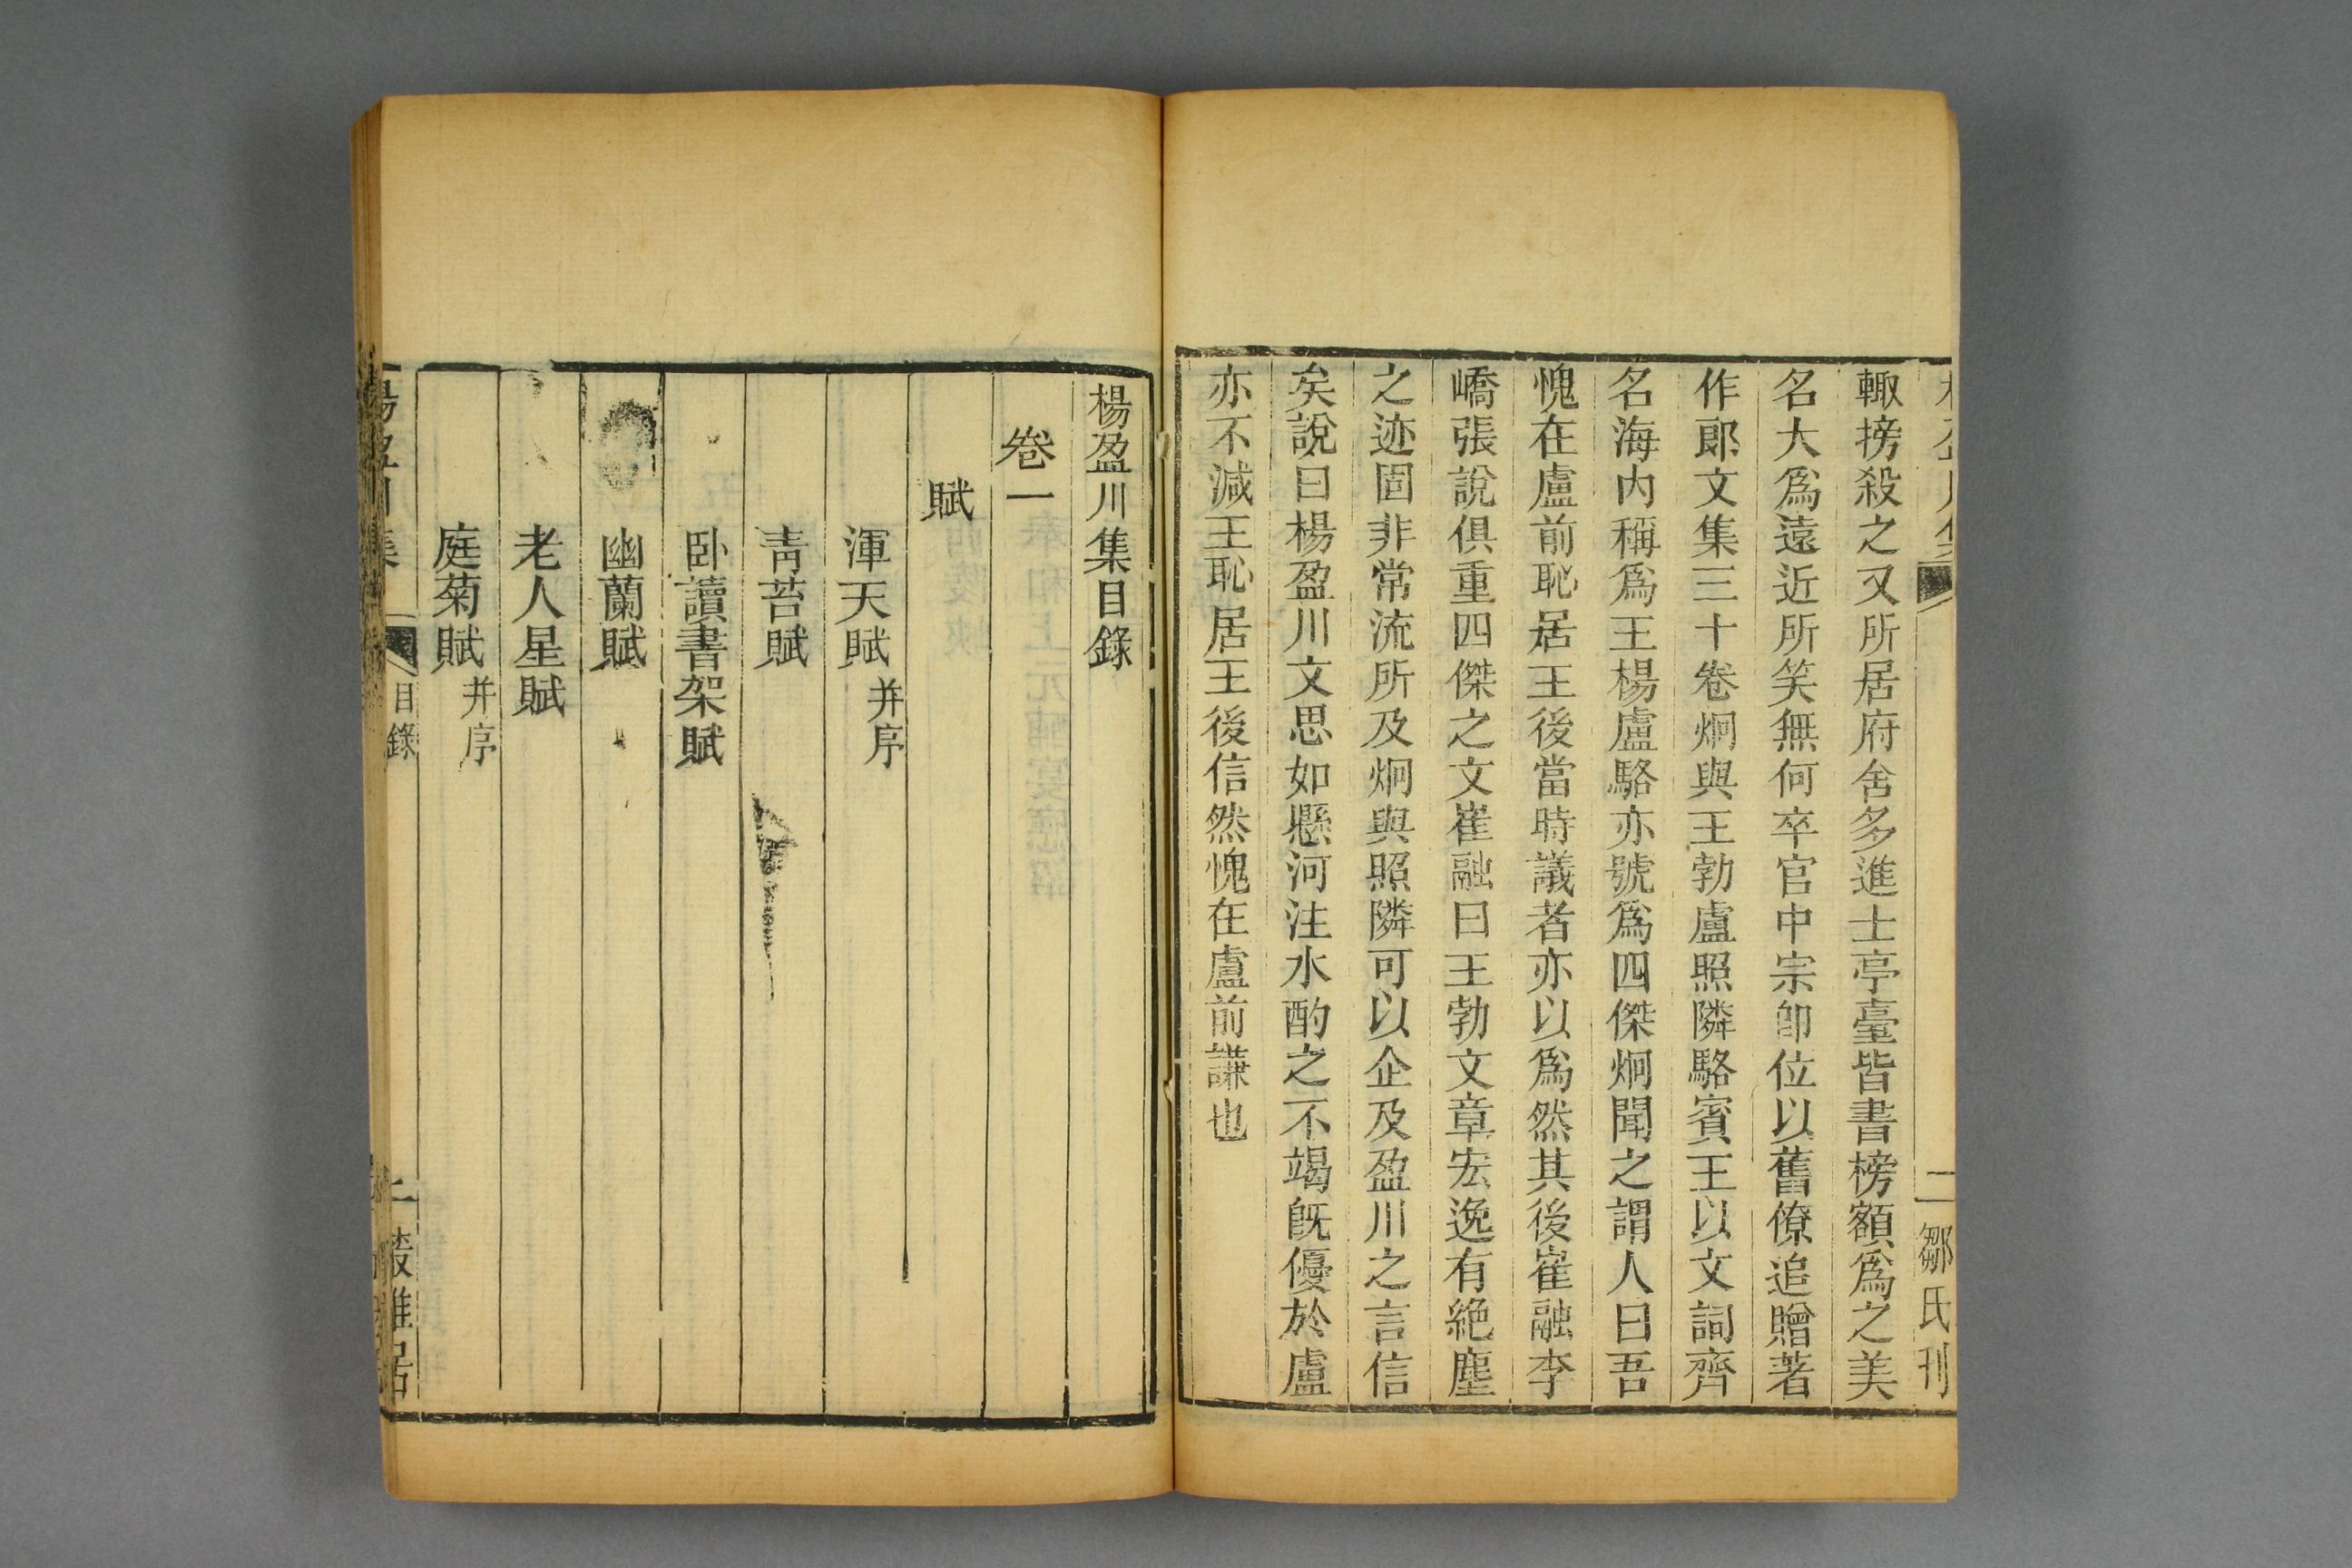 輙搒殺之又所居府舍多進士亭臺皆書榜額爲之美
名大爲遠近所笑無何卒官中宗卽位以舊僚追贈著
作郞文集三十卷炯與王勃盧照隣駱賓王以文詞齊
名海內稱爲王楊盧駱亦號爲四傑炯聞之謂人曰吾
愧在盧前恥居王後當時議者亦以爲然其後崔融李
嶠張說俱重四傑之文崔融曰王勃文章宏逸有絕塵
之迹固非常流所及炯與照隣可以企及盈川之言信
矣說曰楊盈川文思如懸河注水酌之不竭旣優於盧
亦不減王恥居王後信然愧在盧前謙也
二 鄒氏刊
楊盈川集目錄
卷一
賦
渾天賦并序
靑苔賦
卧讀書架賦
幽蘭賦
老人星賦
庭菊賦并序
楊盈川集 目錄 一 叢雅居